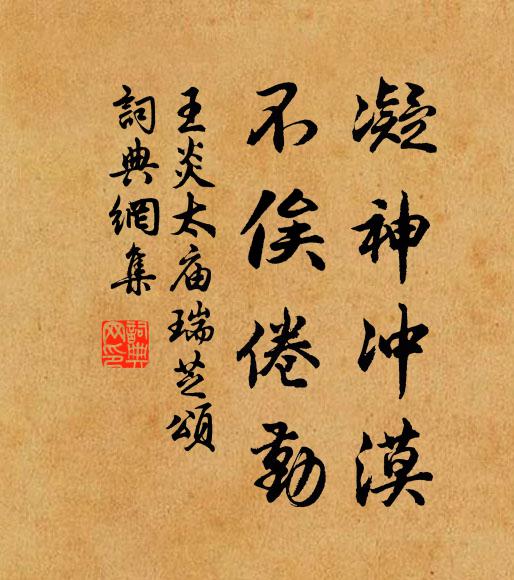 凝神沖漠
不俟倦勤
王炎太庙瑞芝頌
詞典網集
詞典網印